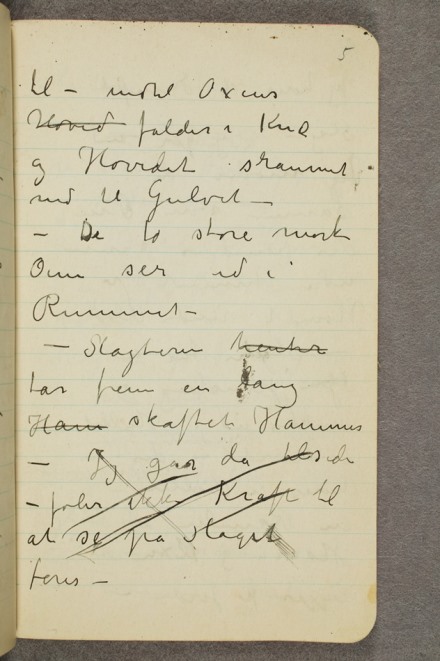 5
til – indtil Oxens
Hoved falder i Knæ
og Hovedet strammet
ned til Gulvet –
– De to store mørk
Øine ser ud i
Rummet –
– Slagteren henter
tar frem en lang
Ham skaftet Hammer
– Jeg gaar da tilside
– føler ikke Kraft til
at se på slaget
føres –